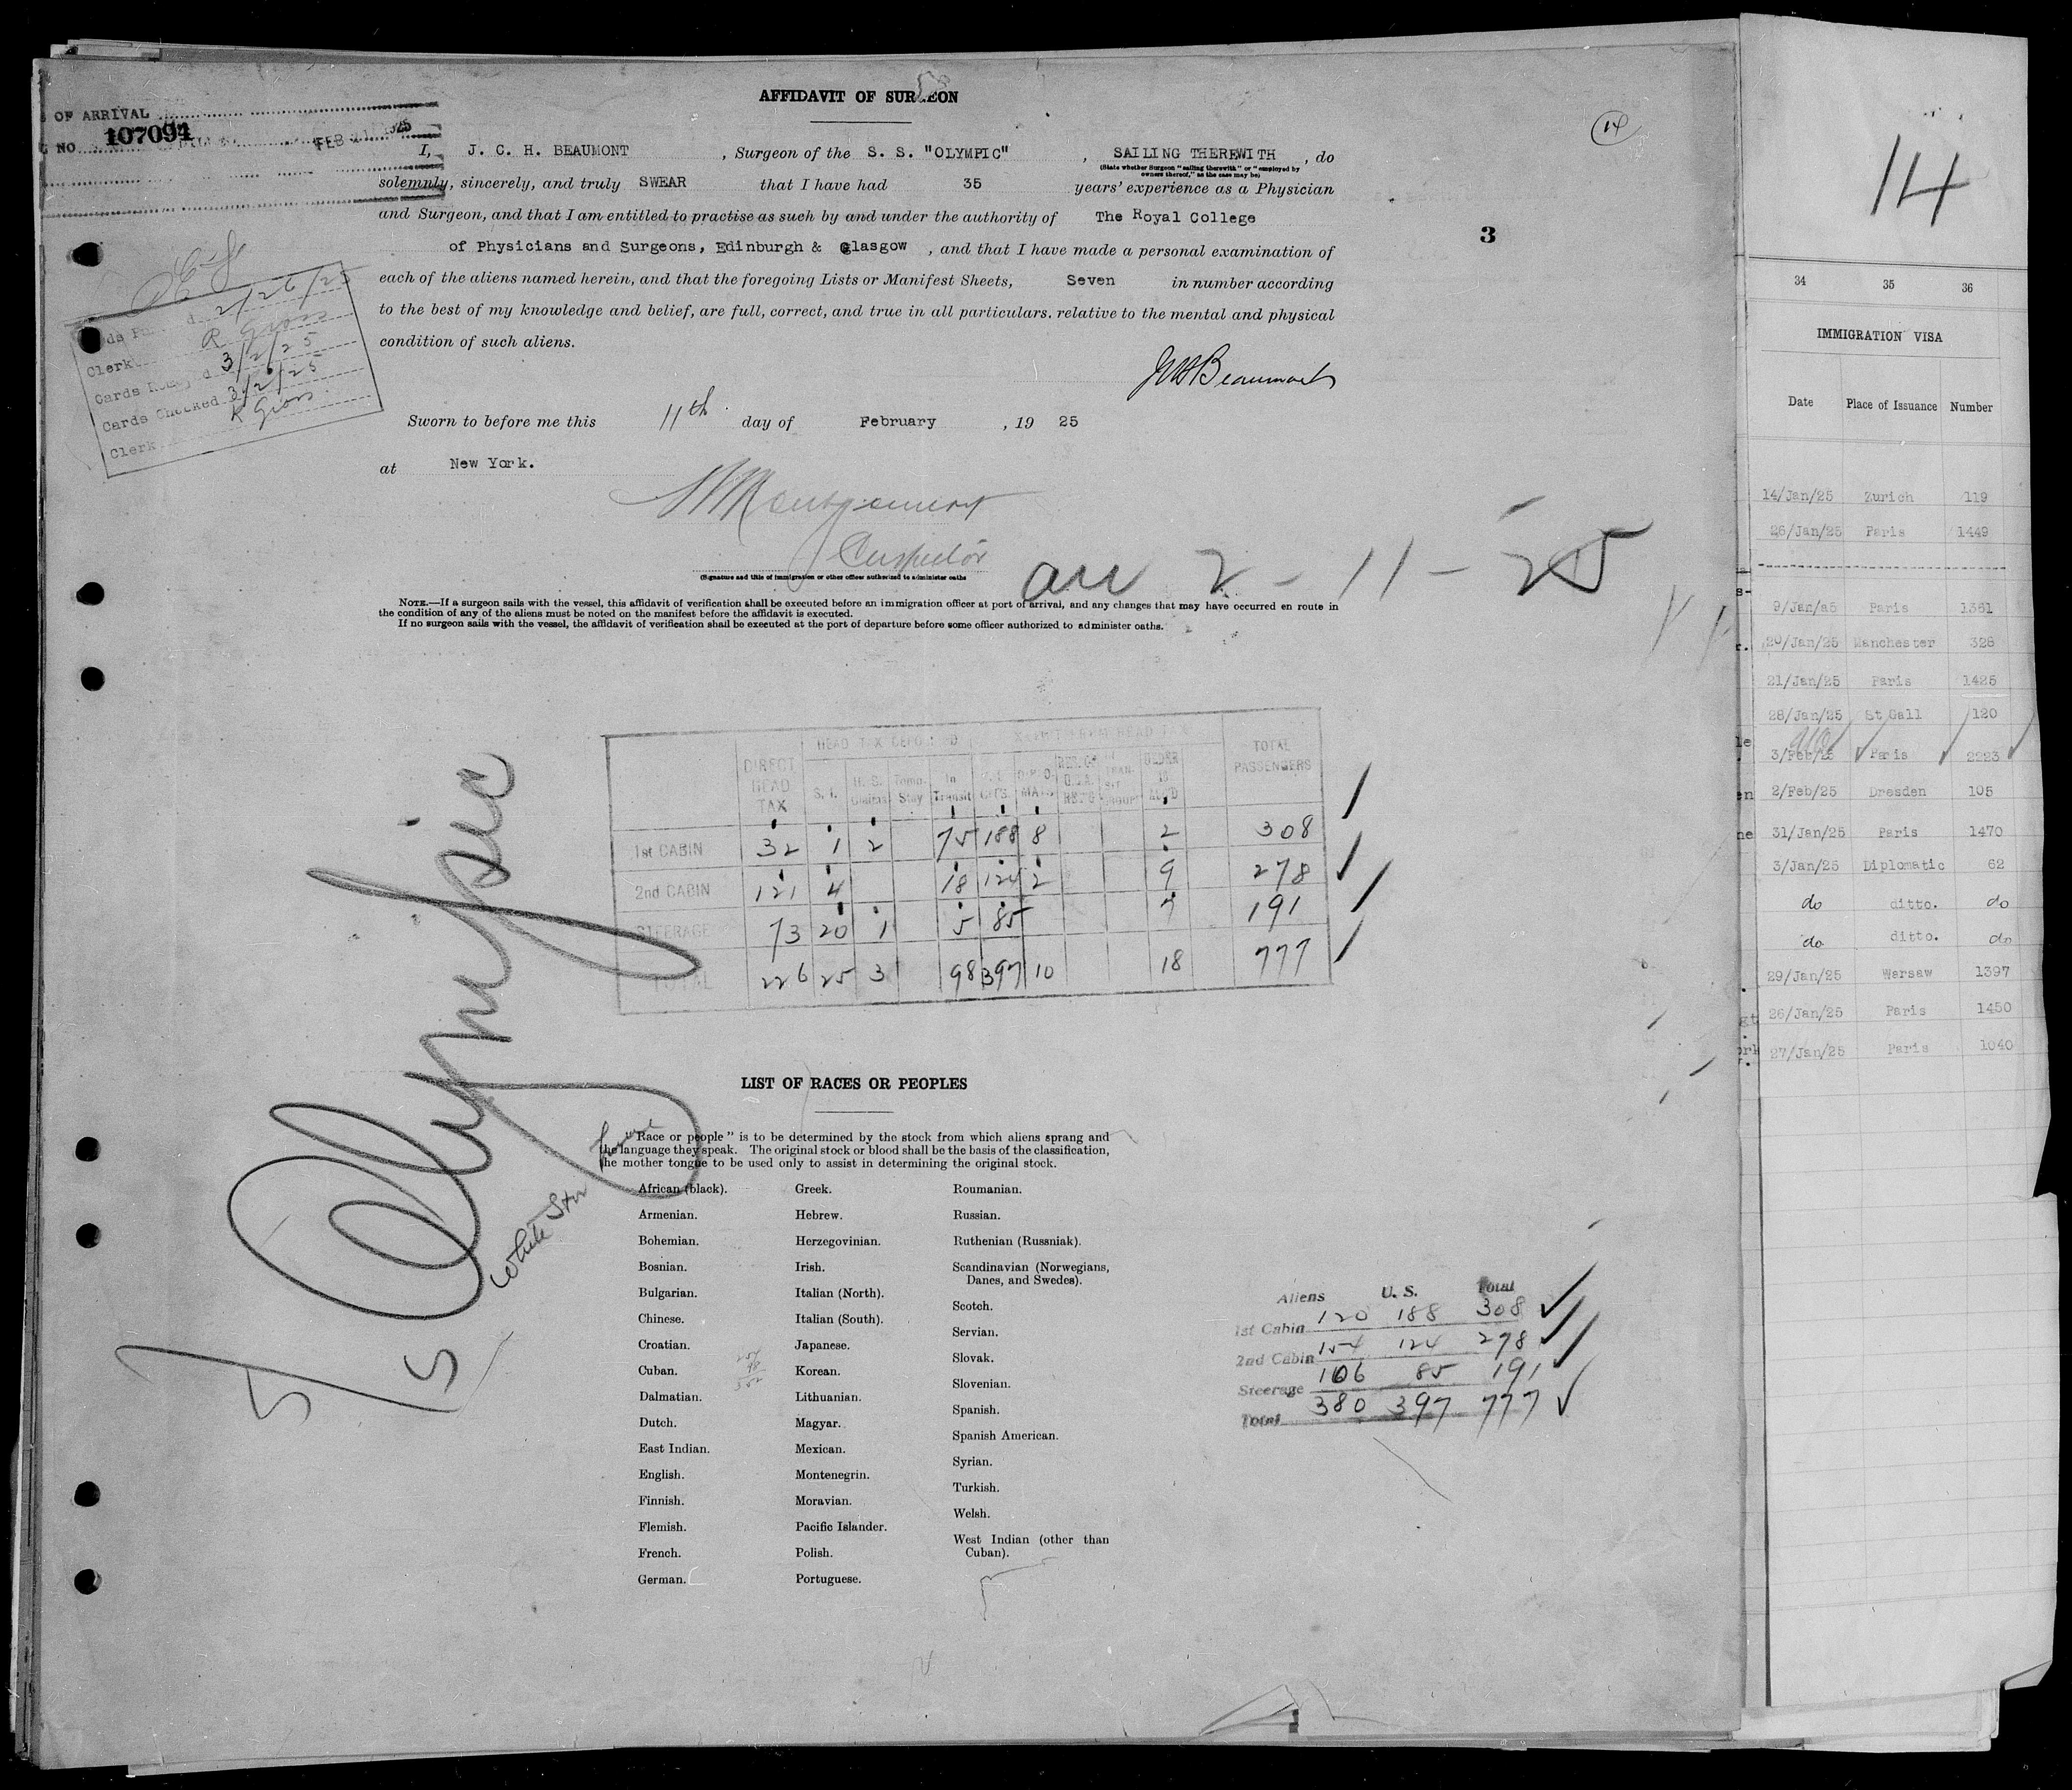 AFFIDAVIT OF SURGEON
OF ARRIVAL
NO 107094 FEB 1925
14
I, J. C. H. BEAUMONT, Surgeon of the S. S. "OLYMPIC", SAILING THEREWITH, do
(State whether Surgeon "sailing therewith" or "employed by
owners thereof," as the case may be)
solemnly, sincerely, and truly SWEAR that I have had 35 years' experience as a Physician
and Surgeon, and that I am entitled to practise as such by and under the authority of The Royal College
of Physicians and Surgeons, Edinburgh & Glasgow, and that I have made a personal examination of
each of the aliens named herein, and that the foregoing Lists or Manifest Sheets, Seven in number according
to the best of my knowledge and belief, are full, correct, and true in all particulars, relative to the mental and physical
condition of such aliens.
3
JCHBeaumont
Sworn to before me this 11th day of February, 19 25
at New York.
Montgomery
Inspector
(Signature and title of immigration or other officer authorized to administer oaths
arr 2-11-25
2/26/25
Clerk R Gross
Cards 3/2/25
Cards Checked 3/2/25
Clerk R Gross
NOTE.—If a surgeon sails with the vessel, this affidavit of verification shall be executed before an immigration officer at port of arrival, and any changes that may have occurred en route in
the condition of any of the aliens must be noted on the manifest before the affidavit is executed.
If no surgeon sails with the vessel, the affidavit of verification shall be executed at the port of departure before some officer authorized to administer oaths.
DIRECT HEAD TAX S. I. In Transit UNDER 16 TOTAL PASSENGERS
1st CABIN 32 1 2 75 188 8 2 308
2nd CABIN 121 4 18 124 2 9 278
STEERAGE 73 20 1 5 85 7 191
TOTAL 226 25 3 98 397 10 18 777
SS Olympic
White Star
LIST OF RACES OR PEOPLES
"Race or people" is to be determined by the stock from which aliens sprang and
the language they speak. The original stock or blood shall be the basis of the classification,
the mother tongue to be used only to assist in determining the original stock.
African (black).
Armenian.
Bohemian.
Bosnian.
Bulgarian.
Chinese.
Croatian.
Cuban.
Dalmatian.
Dutch.
East Indian.
English.
Finnish.
Flemish.
French.
German.
Greek.
Hebrew.
Herzegovinian.
Irish.
Italian (North).
Italian (South).
Japanese.
Korean.
Lithuanian.
Magyar.
Mexican.
Montenegrin.
Moravian.
Pacific Islander.
Polish.
Portuguese.
Roumanian.
Russian.
Ruthenian (Russniak).
Scandinavian (Norwegians,
Danes, and Swedes).
Scotch.
Servian.
Slovak.
Slovenian.
Spanish.
Spanish American.
Syrian.
Turkish.
Welsh.
West Indian (other than
Cuban).
Aliens U. S. Total
1st Cabin 120 188 308
2nd Cabin 154 124 278
Steerage 106 85 191
Total 380 397 777
14
34 35 36
IMMIGRATION VISA
Date Place of Issuance Number
14/Jan/25 Zurich 119
26/Jan/25 Paris 1449
9/Jan/25 Paris 1361
20/Jan/25 Manchester 328
21/Jan/25 Paris 1425
28/Jan/25 St Gall 120
3/Feb/25 Paris 2223
2/Feb/25 Dresden 105
31/Jan/25 Paris 1470
3/Jan/25 Diplomatic 62
do ditto. do
do ditto. do
29/Jan/25 Warsaw 1397
26/Jan/25 Paris 1450
27/Jan/25 Paris 1040